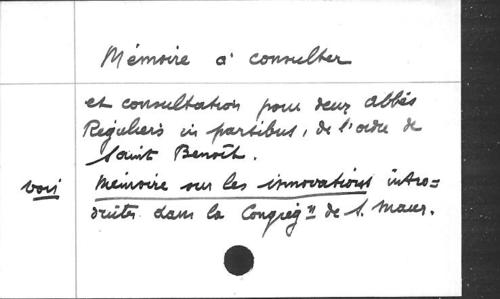 Mémoire à consulter
et consultation pour deux abbés
Réguliers in partibus, de l'ordre de
Saint Benoît.
voir Mémoire sur les innovations intro=
duites dans la Congrég^n de S. Maur.